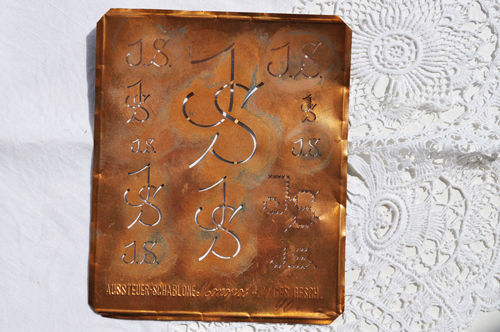 J.S. JS J.S.
JS JS
J.S. J.S.
JS JS JS
J.S. J.S.
AUSSTEUER-SCHABLONE GES. GESCH.